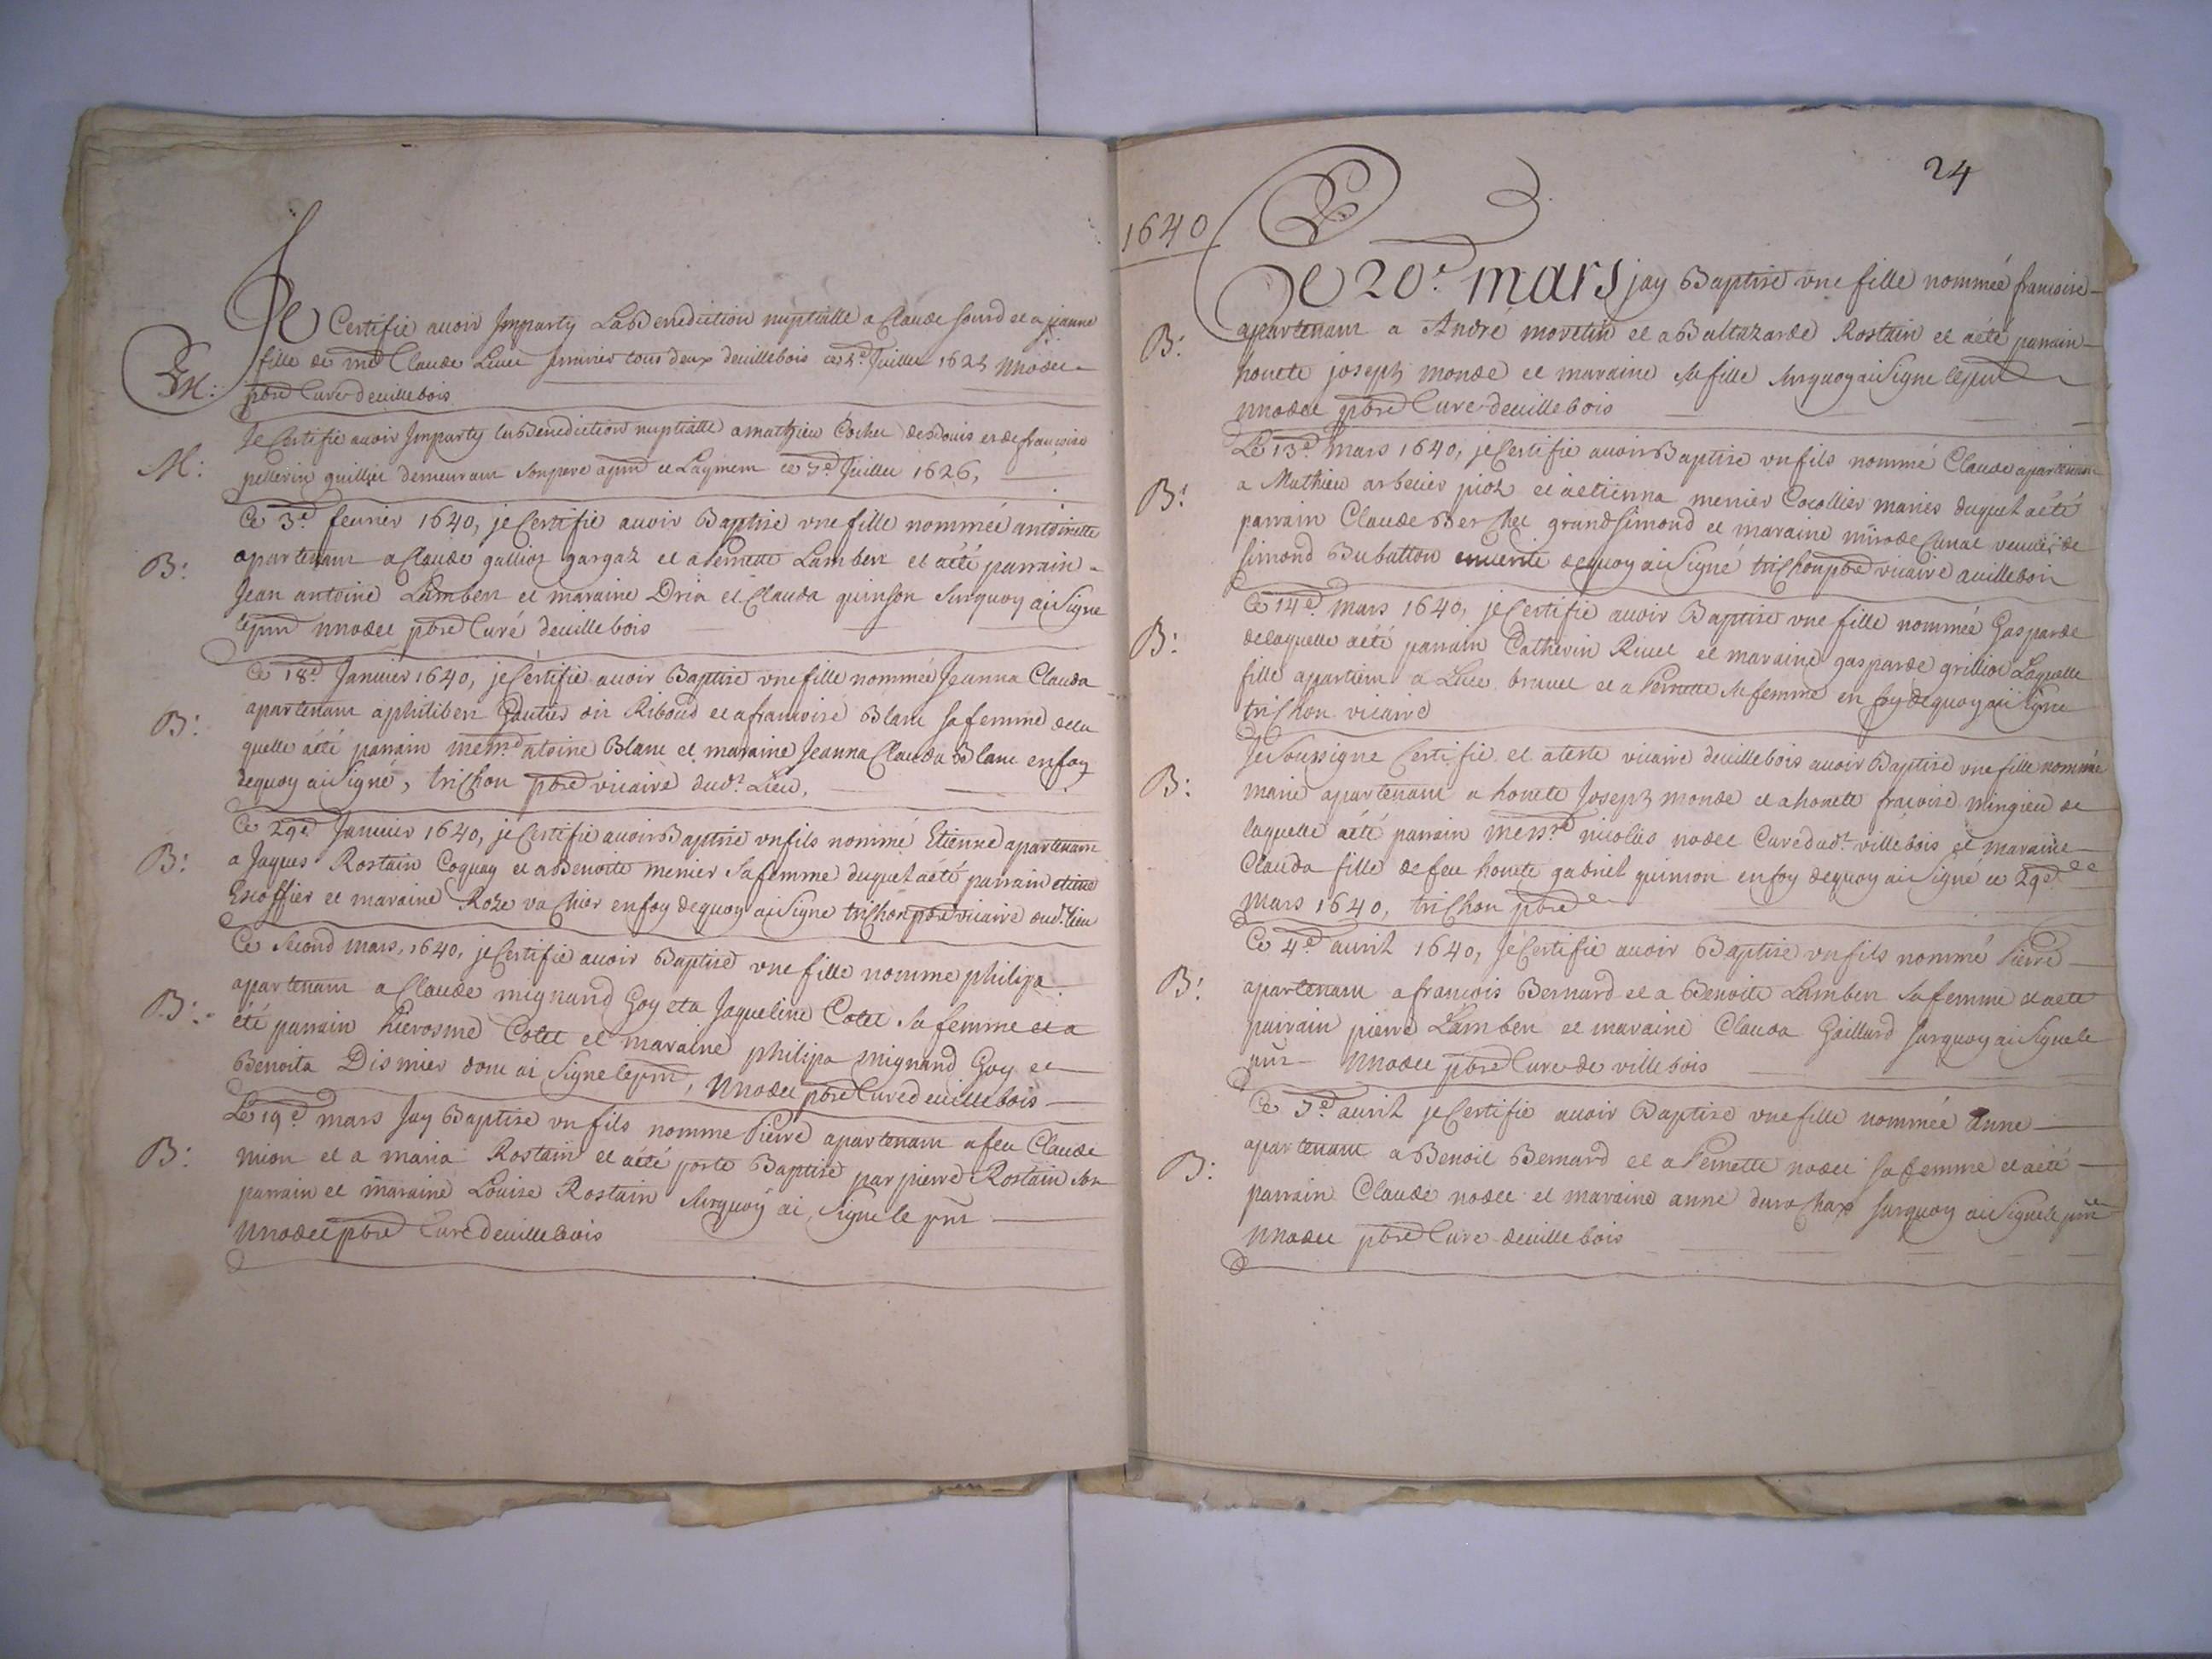 Je Certifie auoir Imparty La Benediction nuptialle a Claude Sourd et a jeanne
fille de me Claude Luce tous deux deuillebois ce Juillet 1625 nnodet
M: pbre Curé deuillebois
Je Certifie auoir Imparty la Benediction nuptialle a mathieu Cochet et de francoise
M: pellerin quillier demeurant Son pere ce 5e Juillet 1626,
Ce 3e feurier 1640, je Certifie auoir Baptisé vne fille nommée antoinette
B: apartenant a Claude gallioz gargaz et a Pernette Lambert et aété parrain
Jean antoine Lambert et maraine Dria et Clauda quinson Surquoy ai Signé
lepnt nnodet pbre Curé deuillebois
Ce 18e Januier 1640, je Certifie auoir Baptisé vne fille nommée Jeanna Clauda
B: apartenant a philibert Gautier dit Riboud et a francoise Blanc sa femme dela
quelle aété parrain messre atoine Blanc et maraine Jeanna Clauda Blanc en foy
dequoy ai Signé, trichon pbre vicaire dudt Lieu,
Ce 29e Januier 1640, je Certifie auoir Baptisé vn fils nommé Etienne apartenant
B: a Jaques Rostain Coquay et a Benoite menier Sa femme duquel aété parrain etiene
Escoffier et maraine Roze vachier en foy dequoy ai Signe trichon pbre vicaire dud. lieu
Ce Second mars, 1640, je Certifie auoir Baptisé vne fille nomme philipa
apartenant a Claude mignand Goy et a Jaqueline Colet Sa femme et a
B: été parrain hierosme Colet et maraine philipa mignand Goy et
Benoita Dismier dont ai Signe lepnt, nnodet pbre Curé deuillebois
Le 19e mars Jay Baptise vn fils nomme Pierre apartenant a feu Claude
B: mion et a maria Rostain et aété porte Baptise par pierre Rostain Son
parrain et maraine Louise Rostain Surquoy ai Signe le pnt
nnodet pbre Curé deuillebois
24
1640
Le 20e mars jay Baptisé vne fille nommée francoise
B: apartenant a André moretin et a Baltazarde Rostain et aété parrain
honete joseph monde et maraine Sa fille Surquoy ai Signe lepnt
nnodet pbre Cure deuillebois
Le 13e mars 1640, je Certifie auoir Baptisé vn fils nommé Claude apartenant
B: a Mathieu arbelier pioz et a etienna menier Cocollier mariés duquel aété
parrain Claude Berchet grand Simond et maraine Cunat veuue de
Simond Bubatton dequoy ai Signé trichon pbre vicaire auillebois
Ce 14e mars 1640, je Certifie auoir Baptisé vne fille nommée Gasparde
B: delaquelle aété parrain Catherin Riuet et maraine gasparde grilliot Laquelle
fille apartient a Luc brunet et a Pernette Sa femme en foy dequoy ai Signe
trichon vicaire
Je Soussigne Certifie et ateste vicaire deuillebois auoir Baptisé vne fille nommée
B: marie apartenant a honete Joseph monde et a honette fracoise mingieu de
laquelle aété parrain messre nicolas nodet Curé dudt villebois et maraine
Clauda fille de feu honete gabriel quinson en foy dequoy ai Signé ce 29e
mars 1640, trichon pbre
Ce 4e auril 1640, je Certifie auoir Baptisé vn fils nommé Pierre
B: apartenant a francois Bernard et a Benoite Lambert Sa femme et aété
parrain pierre Lambert et maraine Clauda Gaillard Surquoy ai Signe le
pnt nnodet pbre Cure de villebois
Ce 5e auril je Certifie auoir Baptisé vne fille nommée Anne
apartenant a Benoit Bernard et a Pernette nodet Sa femme et aété
B: parrain Claude nodet et maraine anne durochax Surquoy ai Signé le pnt
nnodet pbre Cure deuillebois